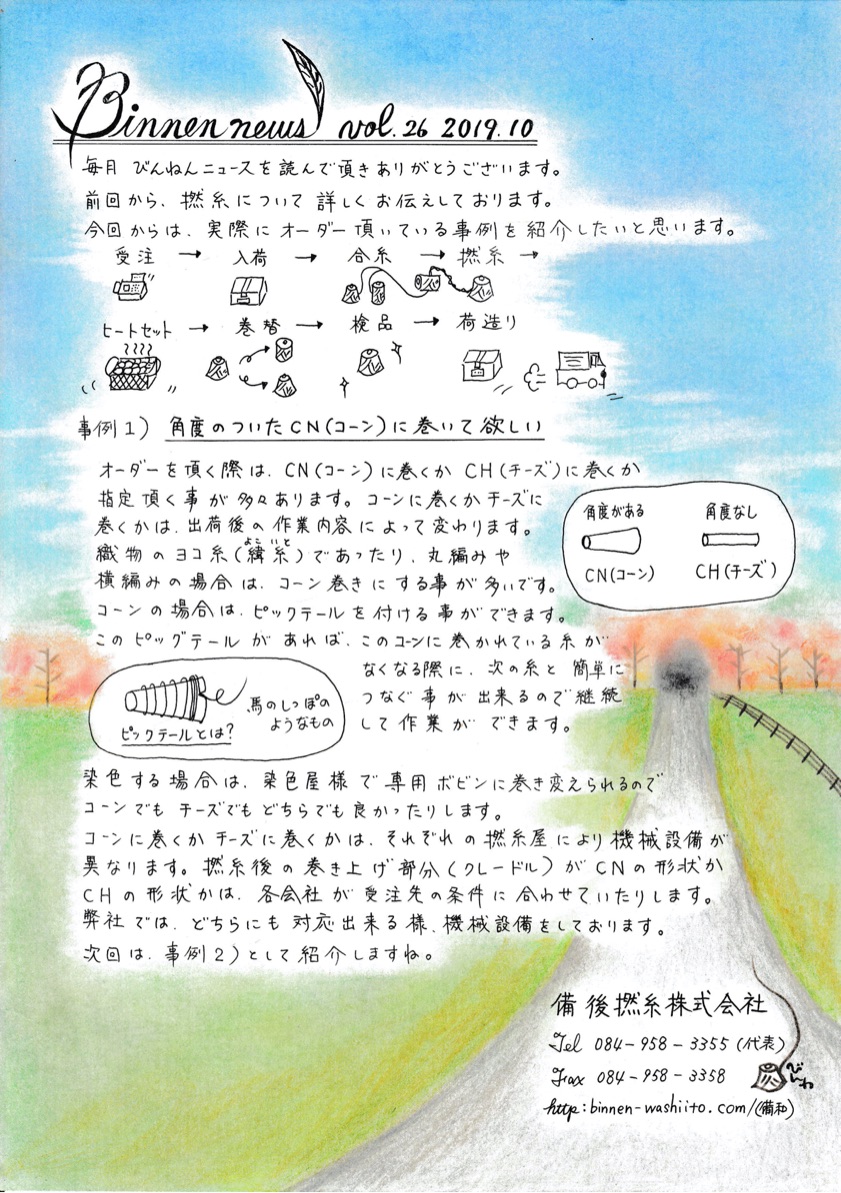 Binnen news vol.26 2019.10
毎月 びんねんニュースを読んで頂きありがとうございます。
前回から、撚糸について詳しくお伝えしております。
今回からは、実際にオーダー頂いている事例を紹介したいと思います。
受注 → 入荷 → 合糸 → 撚糸 →
ヒートセット → 巻替 → 検品 → 荷造り
事例1) 角度のついたCN(コーン)に巻いて欲しい
オーダーを頂く際は、CN(コーン)に巻くか CH(チーズ)に巻くか
指定頂く事が多々あります。コーンに巻くかチーズに
巻くかは、出荷後の作業内容によって変わります。
織物のヨコ糸(緯糸)であったり、丸編みや
よこいと
横編みの場合は、コーン巻きにする事が多いです。
コーンの場合は、ピックテールを付ける事ができます。
このピッグテールがあれば、このコーンに巻かれている糸が
なくなる際に、次の糸と簡単に
つなぐ事が出来るので継続
して作業ができます。
角度がある
角度なし
CN(コーン)
CH(チーズ)
馬のしっぽの
ようなもの
ピックテールとは?
染色する場合は、染色屋様で専用ボビンに巻き変えられるので
コーンでもチーズでもどちらでも良かったりします。
コーンに巻くかチーズに巻くかは、それぞれの撚糸屋により機械設備が
異なります。撚糸後の巻き上げ部分(クレードル)がCNの形状か
CHの形状かは、各会社が受注先の条件に合わせていたりします。
弊社では、どちらにも対応出来る様、機械設備をしております。
次回は、事例2)として紹介しますね。
備後撚糸株式会社
Tel 084-958-3355(代表)
Fax 084-958-3358
びんわ
http:binnen-washiito.com/(備和)